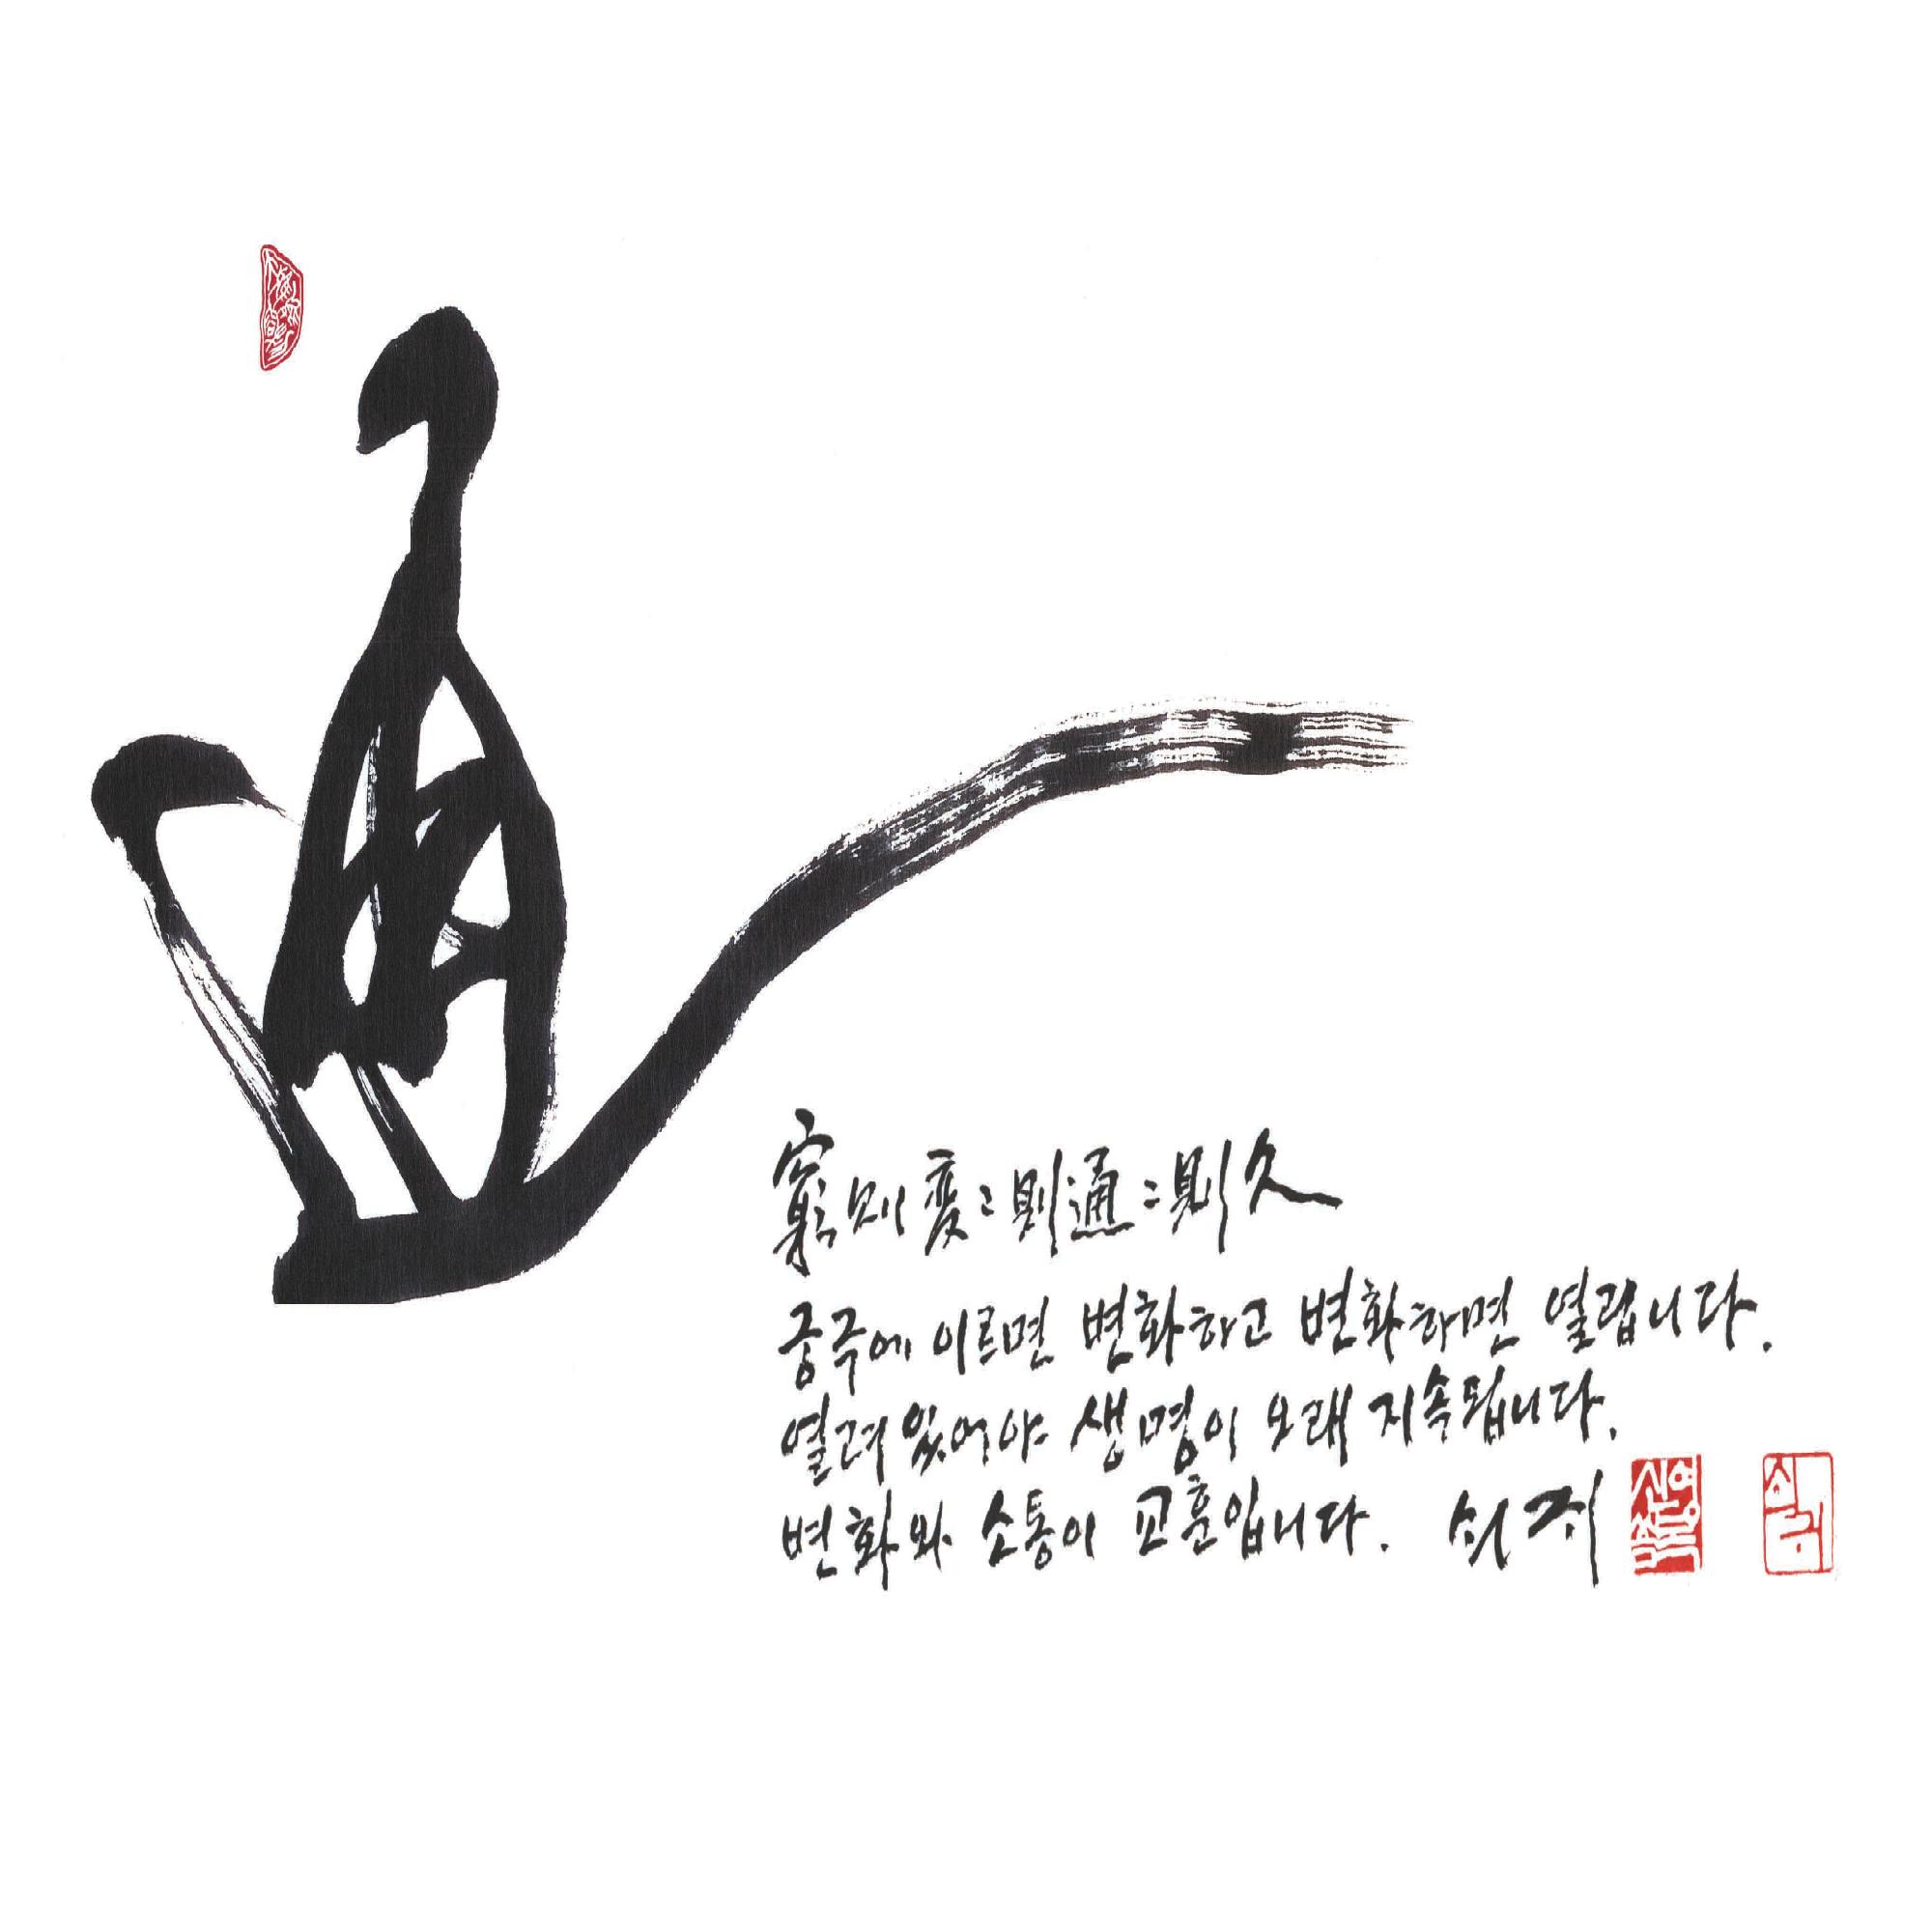 通
窮則變〻則通〻則久
궁극에 이르면 변화하고 변화하면 열립니다.
열려있어야 생명이 오래 지속됩니다.
변화와 소통이 교훈입니다. 쇠귀